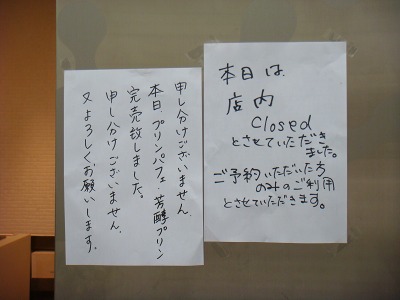 申し分けございません、
本日、プリンパフェ・芳醇プリン
完売致しました。
申し分けございません、
又よろしくお願いします。
本日は、
店内
closed
とさせていただき
ました。
ご予約いただいた方
のみのご利用
とさせていただきます。